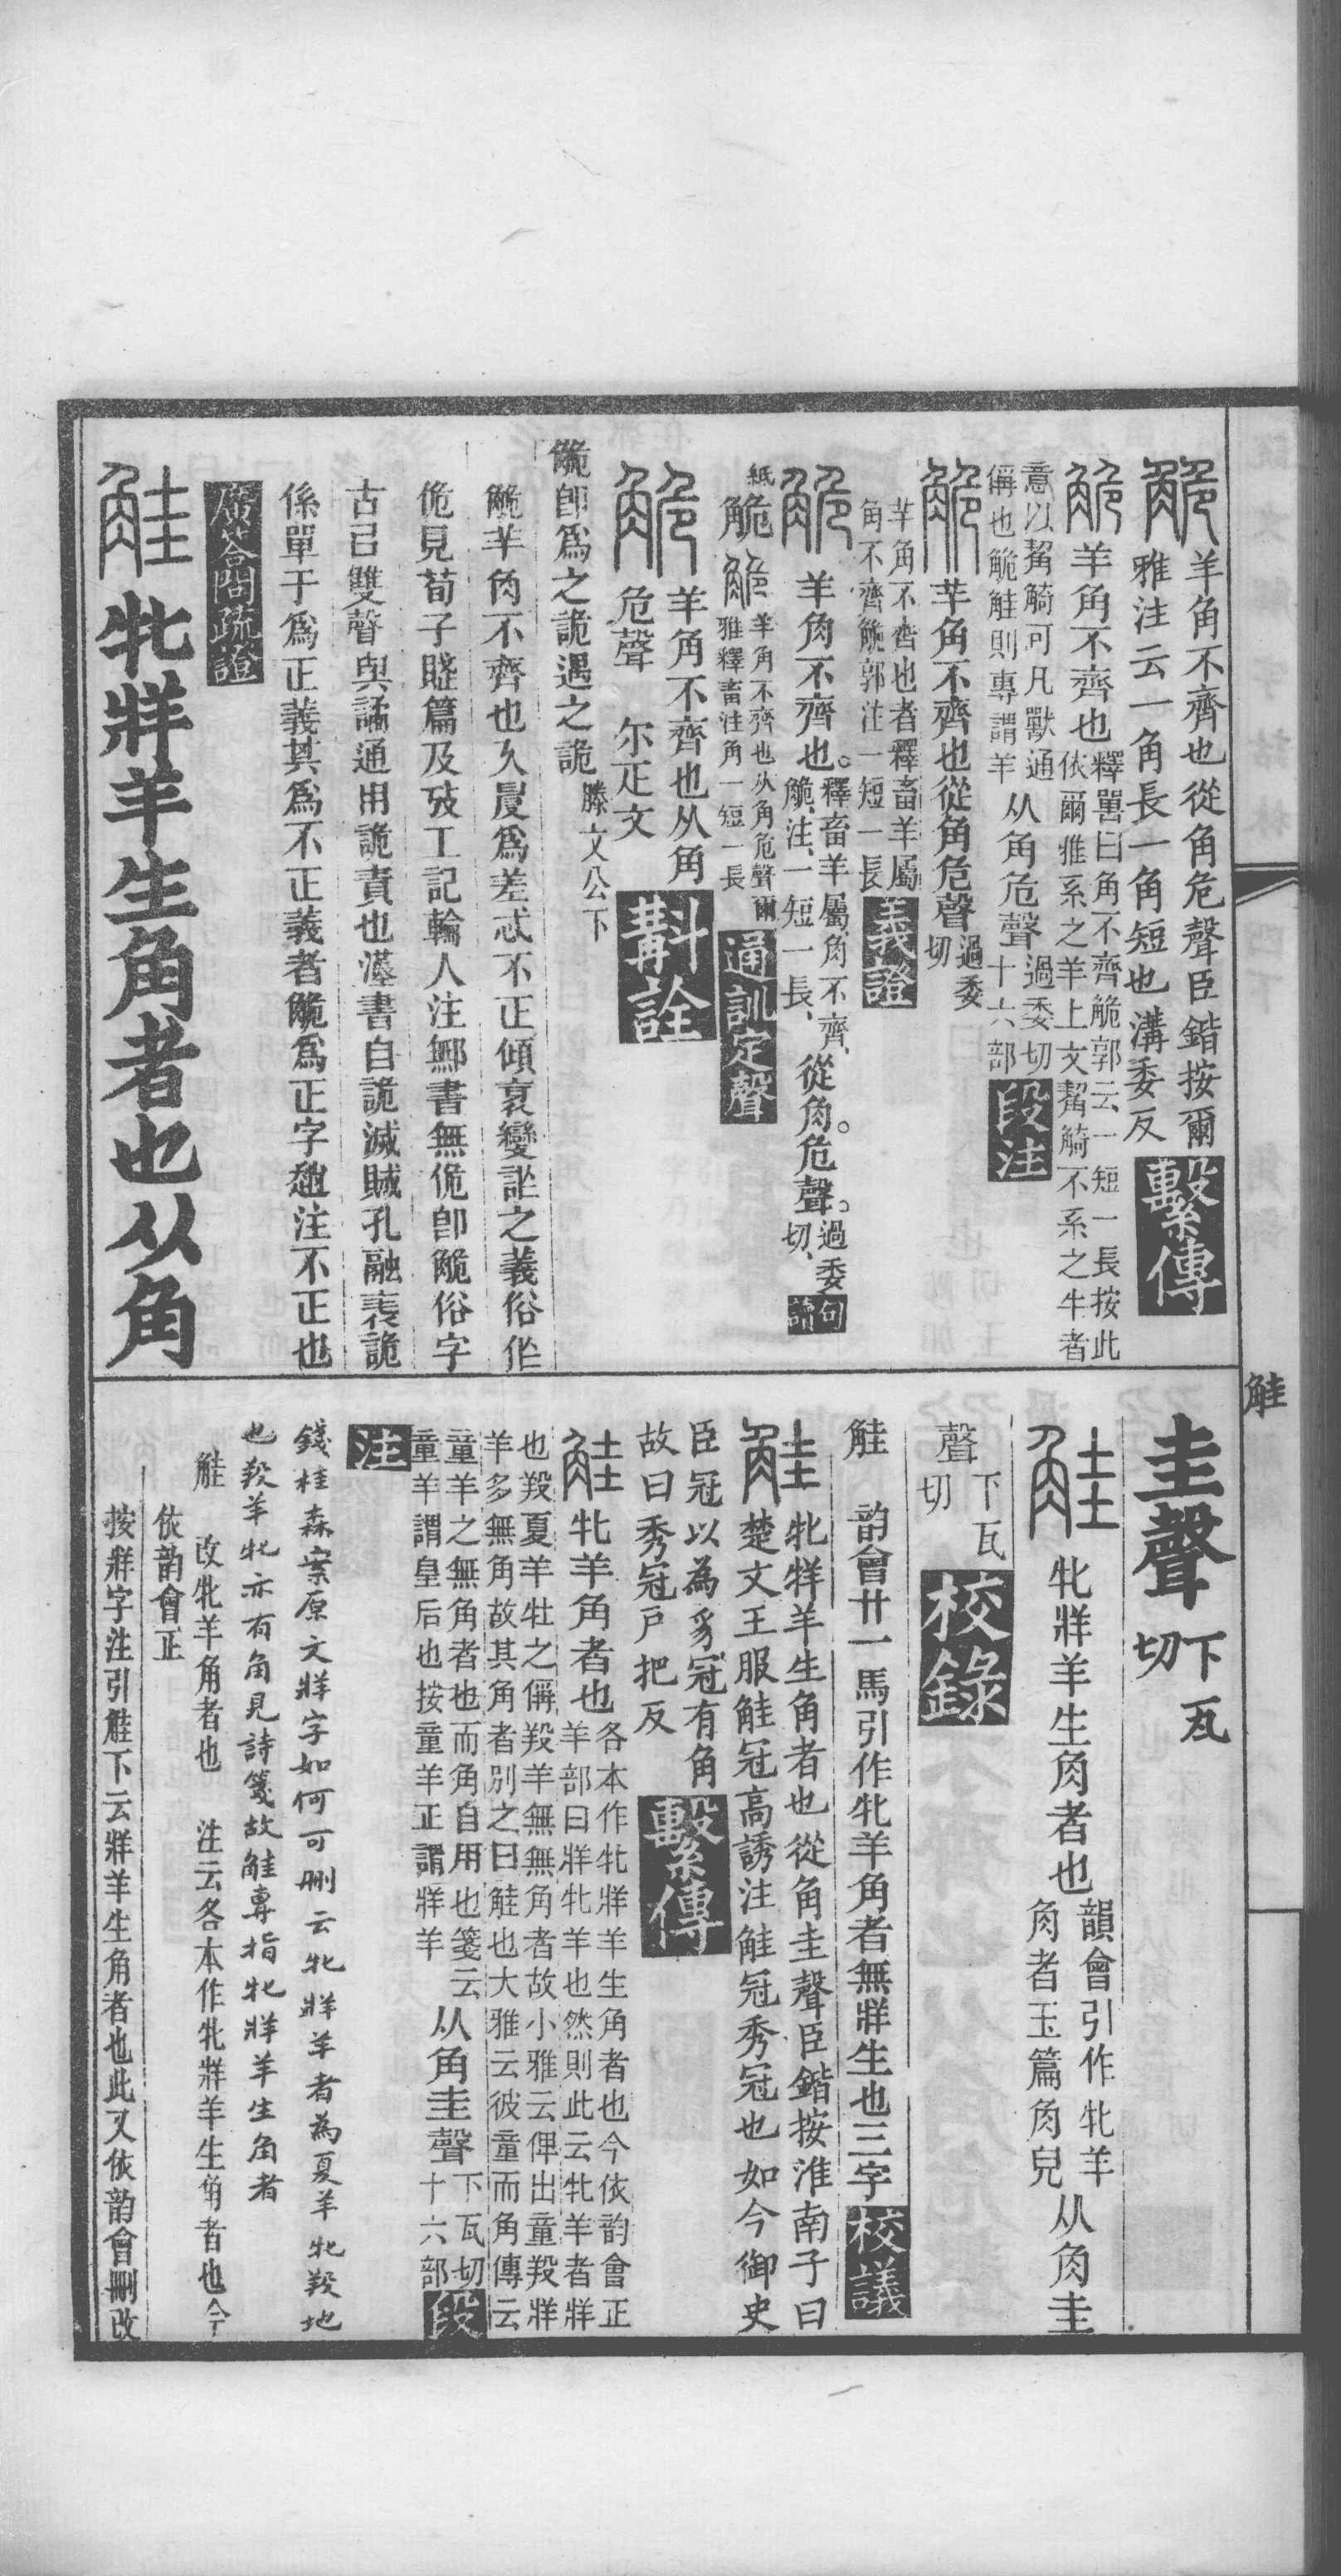 觤羊角不齊也從角危聲臣鍇按爾
雅注云一角長一角短也溝委反
繫傳
觤羊角不齊也
釋嘼曰角不齊觤郭云一短一長按此
依爾雅系之羊上文觢觭不系之牛者
意以觢觭可凡獸通
偁也觤觟則專謂羊
从角危聲
過委切
十六部
段注
觤羊角不齊也從角危聲
過委
切
羊角不齊也者釋畜羊屬
角不齊觤郭注一短一長
義證
觤羊角不齊也。
釋畜羊屬、角不齊、
觤、注、一短一長、
從角。危聲。
過委
切、
句讀
紙
觤觤
羊角不齊也从角危聲爾
雅釋畜注角一短一長
通訓定聲
觤羊角不齊也从角
危聲
尔疋文
斠詮
觤卽爲之詭遇之詭
滕文公下
觤羊角不齊也久叚爲差忒不正傾衺變詐之義俗作
佹見荀子賦篇及攷工記輪人注鄦書無佹卽觤俗字
古㠯雙聲與譎通用詭責也漢書自詭滅賊孔融表詭
係單于爲正義其爲不正義者觤爲正字趩注不正也
廣答問疏證
觟牝牂羊生角者也从角
圭聲
下瓦
切
觟牝牂羊生角者也
韻會引作牝羊
角者玉篇角皃
从角圭
聲
下瓦
切
校錄
觟
韵會廿一馬引作牝羊角者無牂生也三字
校議
觟牝牂羊生角者也從角圭聲臣鍇按淮南子曰
楚文王服觟冠高誘注觟冠秀冠也如今御史
臣冠以為豸冠有角
故曰秀冠戶把反
繫傳
觟牝羊角者也
各本作牝牂羊生角者也今依韵會正
羊部曰牂牝羊也然則此云牝羊者牂
也羖夏羊牡之偁羖羊無無角者故小雅云俾出童羖牂
羊多無角故其角者別之曰觟也大雅云彼童而角傳云
童羊之無角者也而角自用也箋云
童羊謂皇后也按童羊正謂牂羊
从角圭聲
下瓦切
十六部
段
注
錢桂森案原文牂字如何可刪云牝牂羊者為夏羊牝羖地
也羖羊牝亦有角見詩箋故觟專指牝牂羊生角者
觟
改牝羊角者也
注云各本作牝牂羊生角者也今
依韵會正
按牂字注引觟下云牂羊生角者也此又依韵會刪改
觟